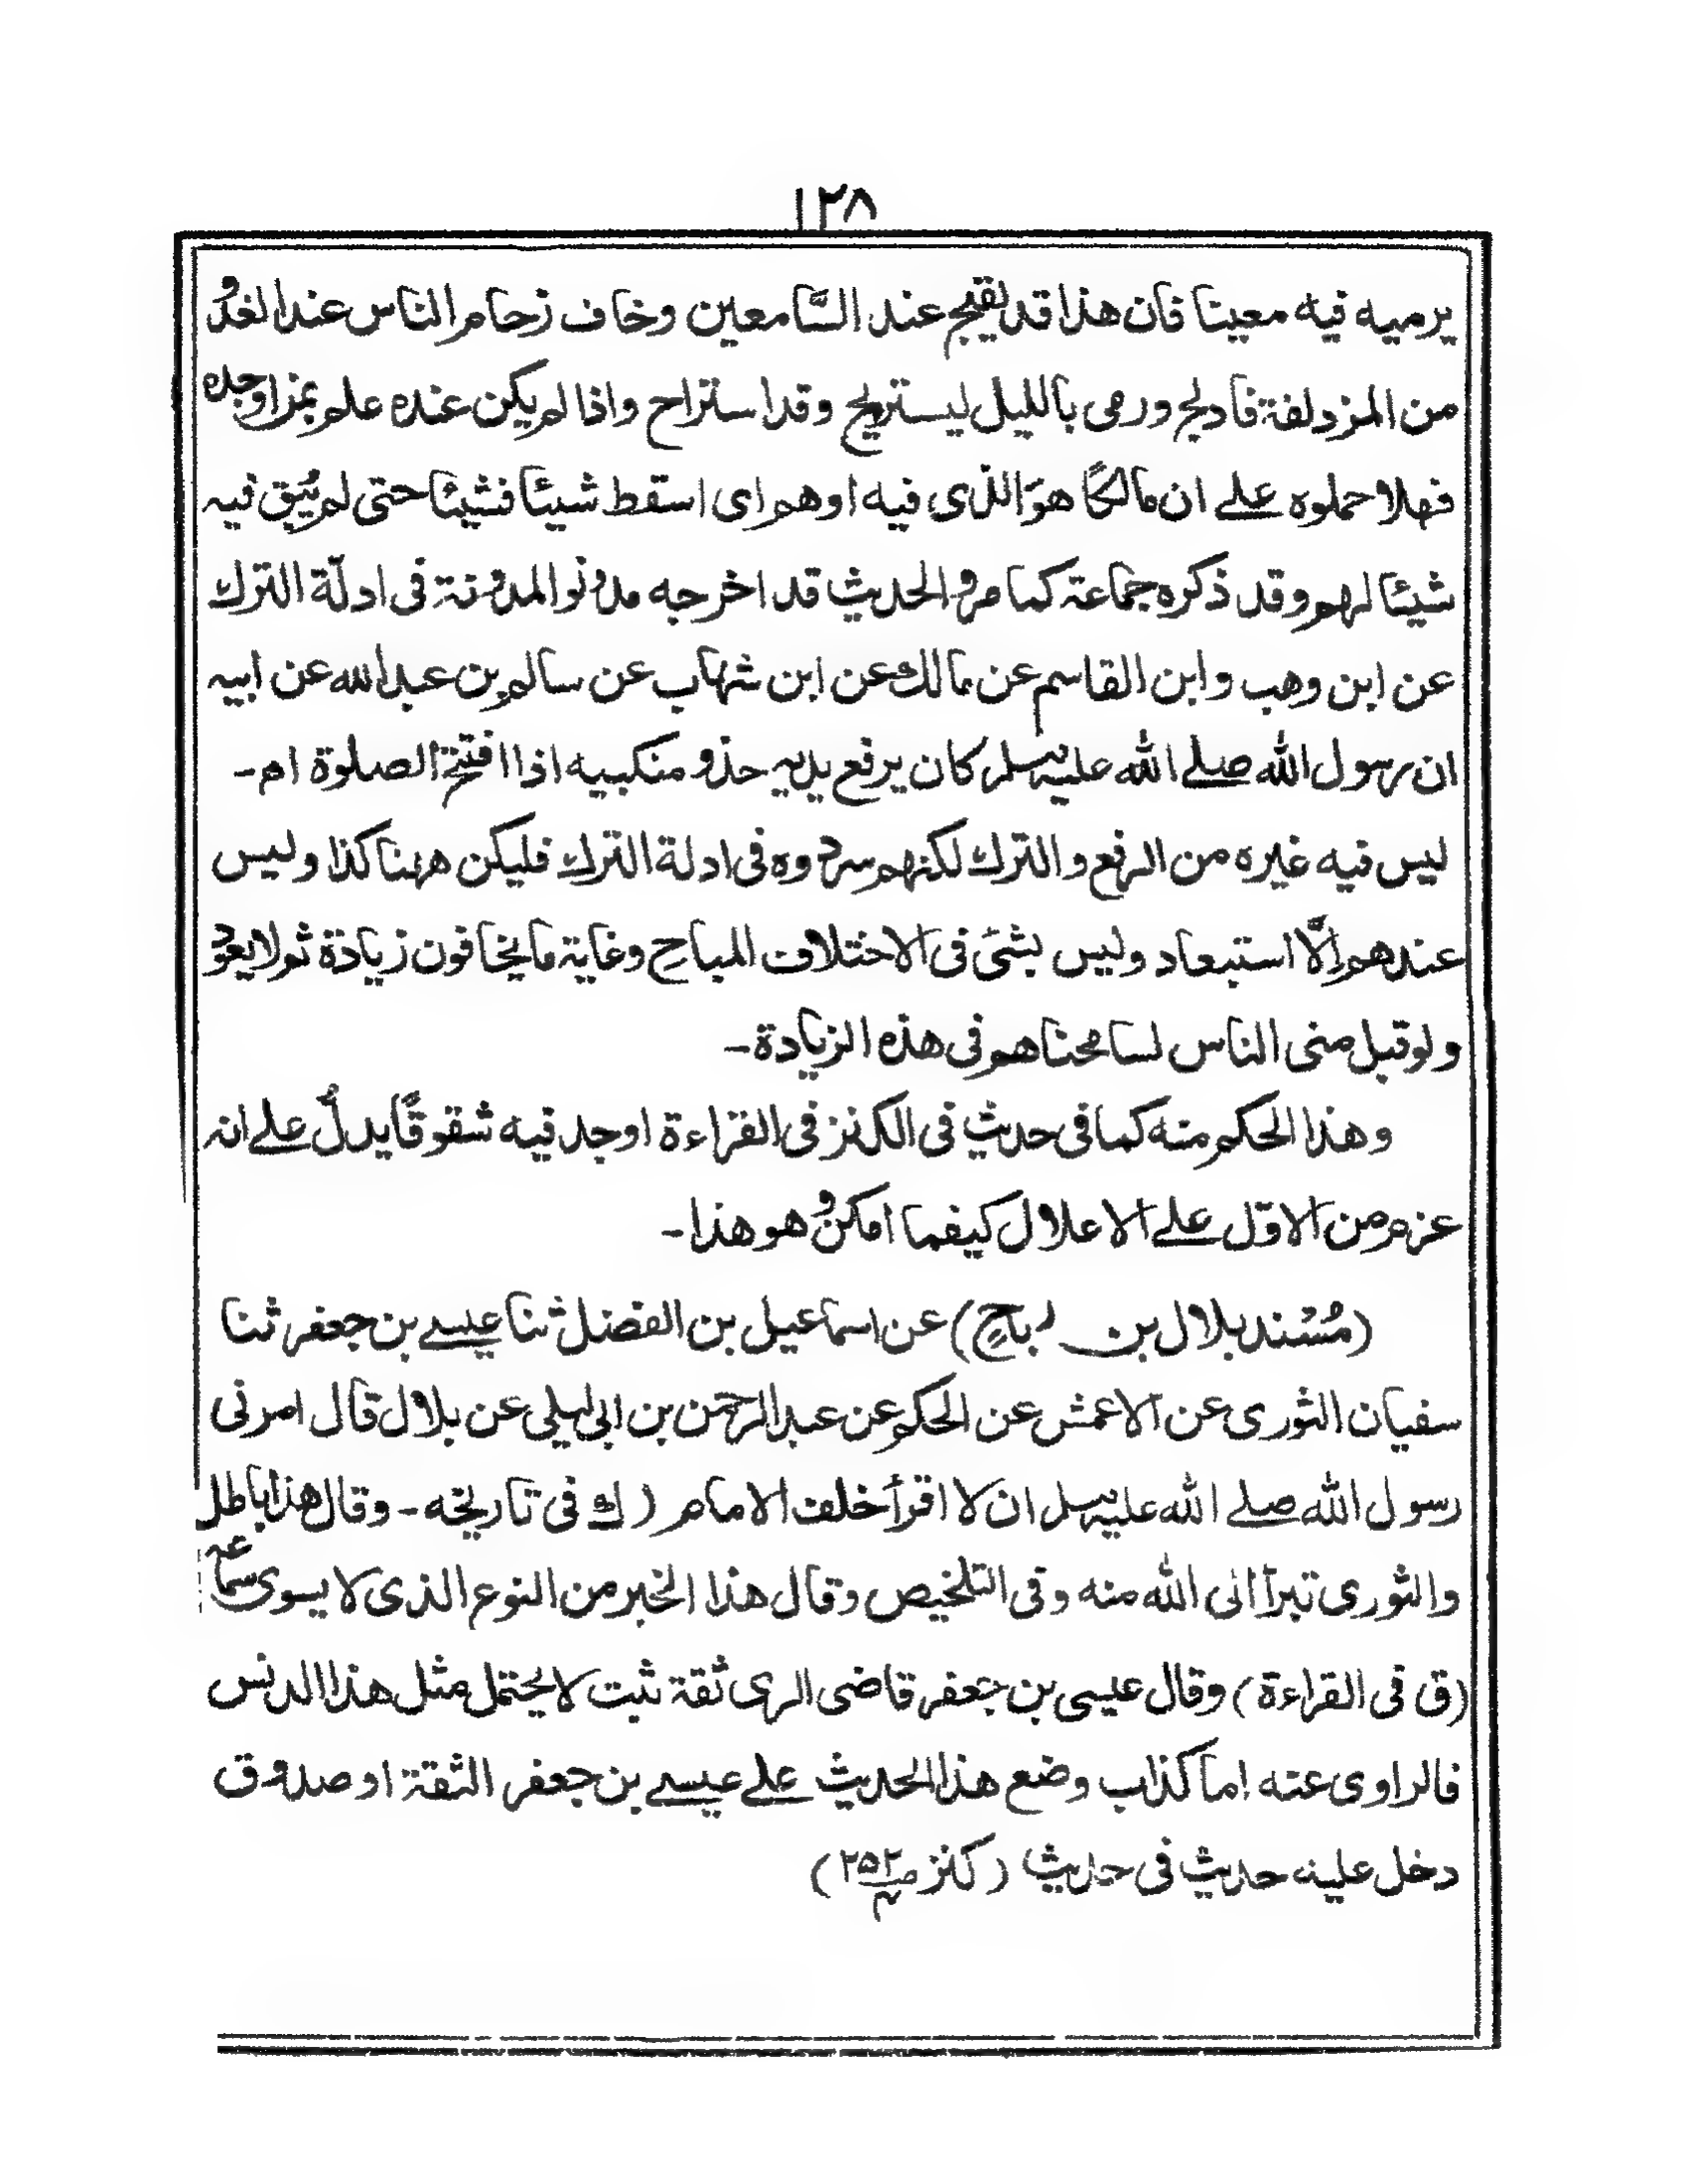 ١٢٨
يرميه فيه معيبنا فان هذا قد يقبح عند السَّامعين وخاف زحام الناس عند الغدو
من المزدلفة فادلج ورمى بالليل ليستريح وقد استراح واذا لم يكن عنده علم بمن اوجده
فهلا حملوه علے ان مالكًا هوَ الذى فيه او هم اى اسقط شيئًا فشيئًا حتى لم يُبق فيہ
شيئًا لهم وقد ذكره جماعة كما مرّ والحديث قد اخرجه مدونو المدونة فى ادلّة الترك
عن ابن وهب وابن القاسم عن مالك عن ابن شهاب عن سالم بن عبد الله عن ابيہ
ان رسول الله صلے الله عليہ وسلم كان يرفع يديہ حذو منكبيه اذا افتتح الصلوة اھ۔
ليس فيه غيره من الرفع والترك لكنهم سردوه فى ادلة الترك فليكن ههنا كذا وليس
عندهم اِلَّا استبعاد وليس بشئ فى الاختلاف المباحِ وغاية ما يخافون زيادة ثم لا يعود
ولو قبل منى الناس لسامحناهم فى هذه الزيادة۔
وهذا الحكم منه كما فى حديث فى الكنز فى القراءة اوجد فيه شقوقًا يدلُّ علے انہ
عزم من الاوّل علے الاعلال كيفما امكن وهو هذا۔
(مُسْند بلال بن رباحِ) عن اسماعيل بن الفضل ثنا عيسے بن جعفر ثنا
سفيان الثورى عن الاعمش عن الحكم عن عبد الرحمن بن ابى ليلى عن بلال قال امرنى
رسول الله صلے الله عليہ وسلم ان لا اقرأ خلف الامام (ك فى تاريخه۔ وقال هذا باطل
والثورى تبرأ الى الله منه وفى التلخيص وقال هذا الخبر من النوع الذى لا يسوى سماعہ
(ق فى القراءة) وقال عيسى بن جعفر قاضى الرى ثقة ثبت لا يحتمل مثل هذا الدنس
فالراوى عنه اما كذاب وضع هذا الحديث علے عيسے بن جعفر الثقة او صدوق
دخل عليه حديث فى حديث (كنز ص٢٥٢ ج٤)